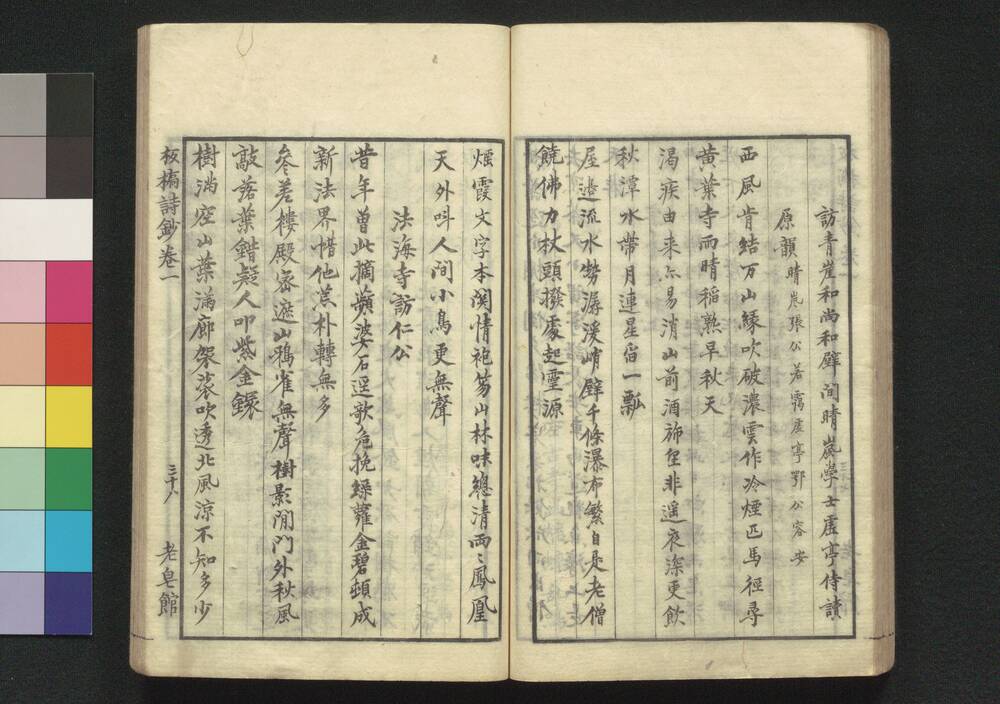 訪青崖和尚和壁間晴嵐學士虛亭侍讀
原韻 晴嵐張公若靄虛亭鄂公容安
西風肯結万山緣吹破濃雲作冷煙匹馬徑尋
黄葉寺雨晴稻熟早秋天
渴疾由來亦易消山前酒旆望非遥夜深更飲
秋潭水帶月連星舀一瓢
屋邊流水勢潺湲峭壁千條瀑布繁自是老僧
饒佛力杖頭撥處起靈源
煙霞文字本関情袍笏山林味總清兩〻鳳凰
天外叫人間小鳥更無聲
法海寺訪仁公
昔年曾此摘蘋婆石逕歌危挽綠蘿金碧頓成
新法界惜他荒朴轉無多
參差樓殿密遮山鴉雀無聲樹影閒門外秋風
敲落葉錯疑人叩紫金鐶
樹滿空山葉滿廊袈裟吹透北風涼不知多少
板橋詩鈔卷一
三十八
老皂館